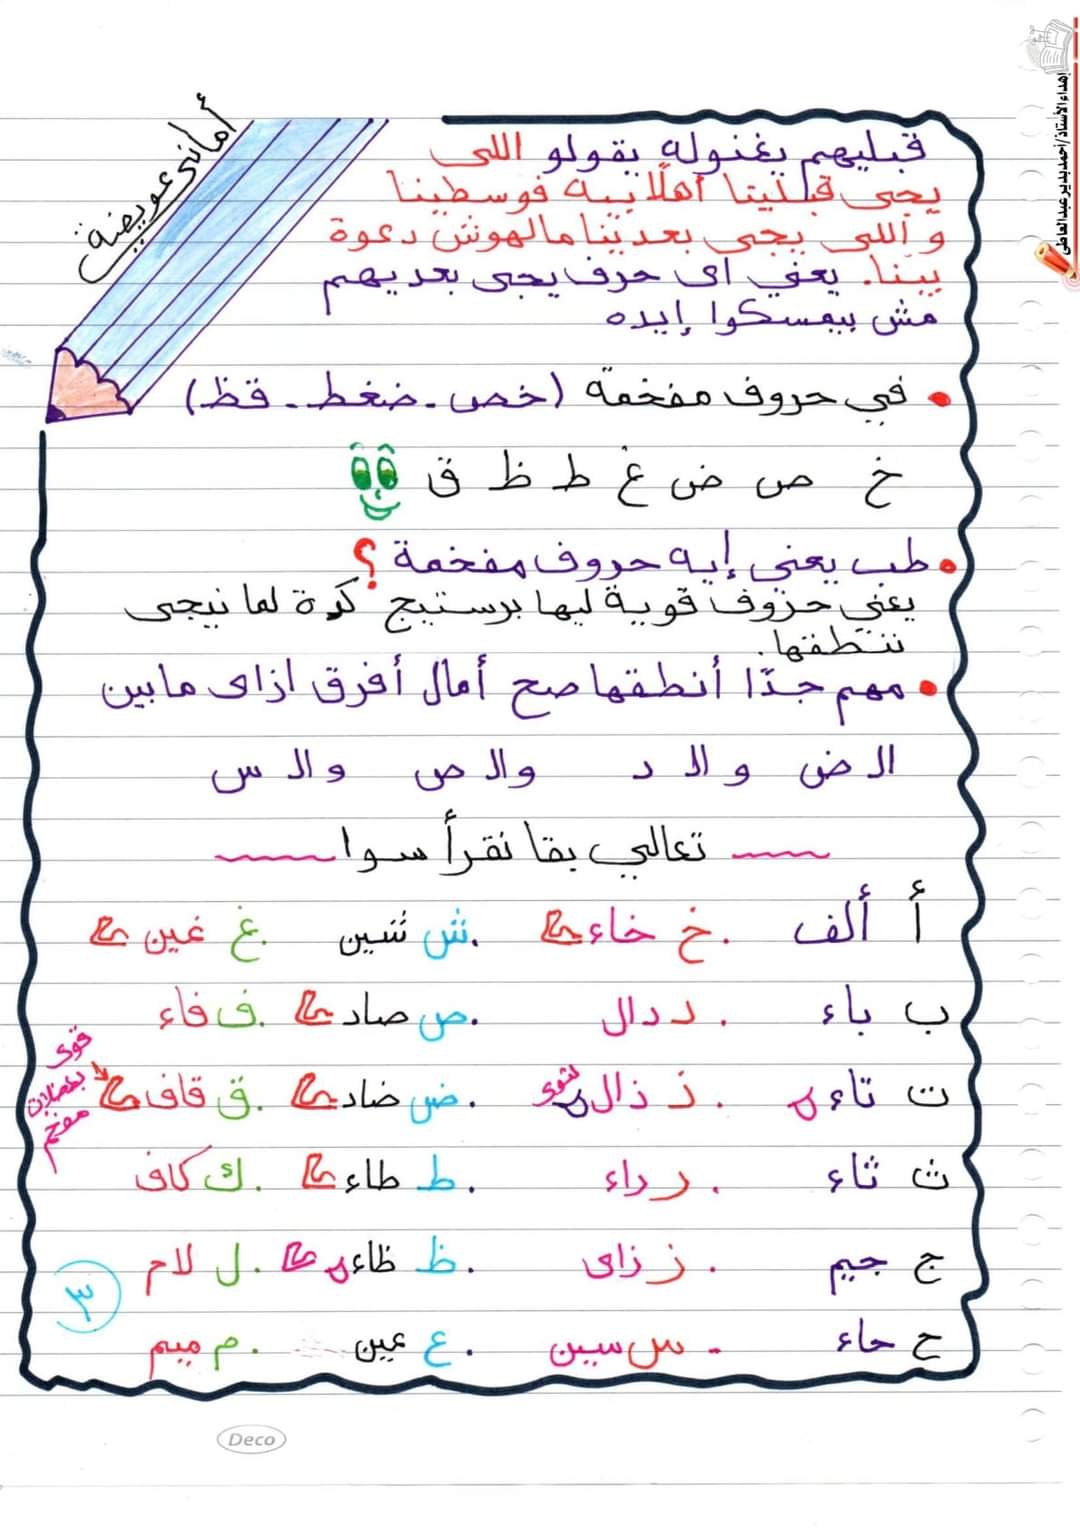 إهداء الأستاذ/أحمد بدير عبد العاطى
أمانى عويضة
قبليهم يغنوله يقولو اللى
يجى قبلينا أهلًا بيه فوسطينا
و اللى يجى بعدينا مالهوش دعوة
بينا. يعني اى حرف يجى بعديهم
مش بيمسكوا إيده
• في حروف مفخمة (خص - ضغط - قظ)
خ ص ض غ ط ظ ق
• طب يعني إيه حروف مفخمة ؟
يعني حروف قوية ليها برستيج كدة لما نيجى
ننطقها.
• مهم جدًا أنطقها صح أمال أفرق ازاى مابين
الـ ض والـ د والـ ص والـ س
تعالي بقا نقرأ سوا
أ ألف . خ خاء . ش شين . غ غين
ب باء . د دال . ص صاد . ف فاء
ت تاء . ذ ذال لثوى . ض ضاد . ق قاف
قوى بعضلات مفخم
ث ثاء . ر راء . ط طاء . ك كاف
ج جيم . ز زاى . ظ ظاء . ل لام
ح حاء - س سين . ع عين . م ميم
٣
Deco